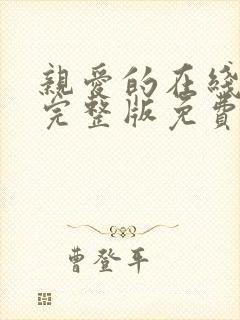 親愛的在綫
完整版免費
曹登平